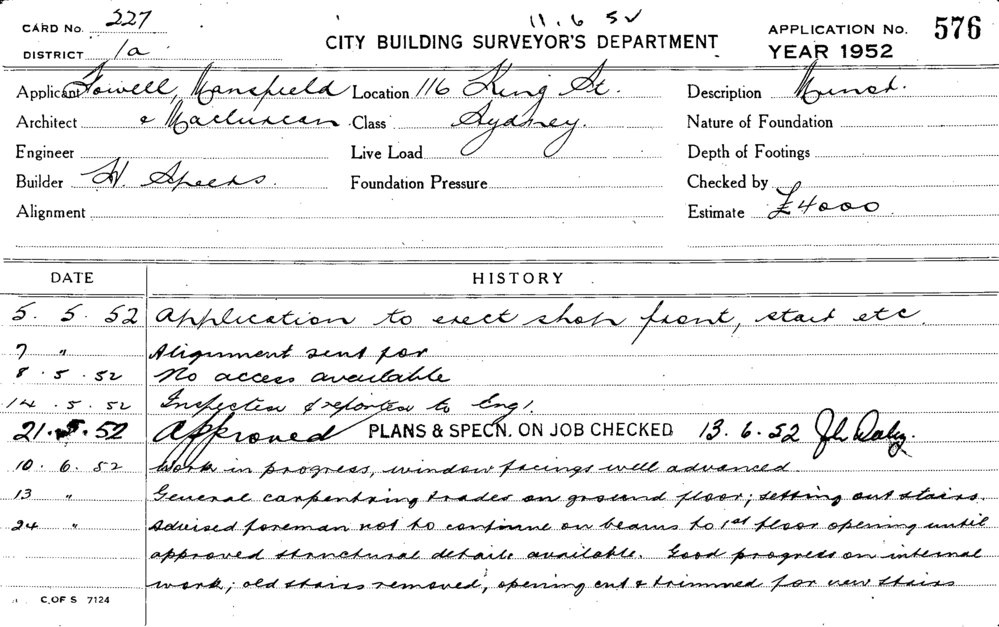 CARD No. 227 11.6.52 APPLICATION No. 576
DISTRICT 1a CITY BUILDING SURVEYOR'S DEPARTMENT YEAR 1952
Applicant Fowell, Mansfield Location 116 King St. Description
Architect & Maclurcan Class Sydney. Nature of Foundation
Engineer Live Load Depth of Footings
Builder W. Foundation Pressure Checked by
Alignment Estimate £4000
DATE HISTORY
5. 5. 52 Application to erect shop front, stair etc.
7 " Alignment sent for
8.5.52 No access available
14.5.52 Inspected & reported to Eng'.
21.5.52 Approved PLANS & SPECN. ON JOB CHECKED 13.6.52
10.6.52 Work in progress, window facings well advanced
13 " General carpentring trades on ground floor; setting out stairs.
24 " Advised foreman not to continue on beams to 1st floor opening until
approved structural details available. Good progress on internal
work; old stairs removed, opening cut & trimmed for new stairs
C OF S 7124